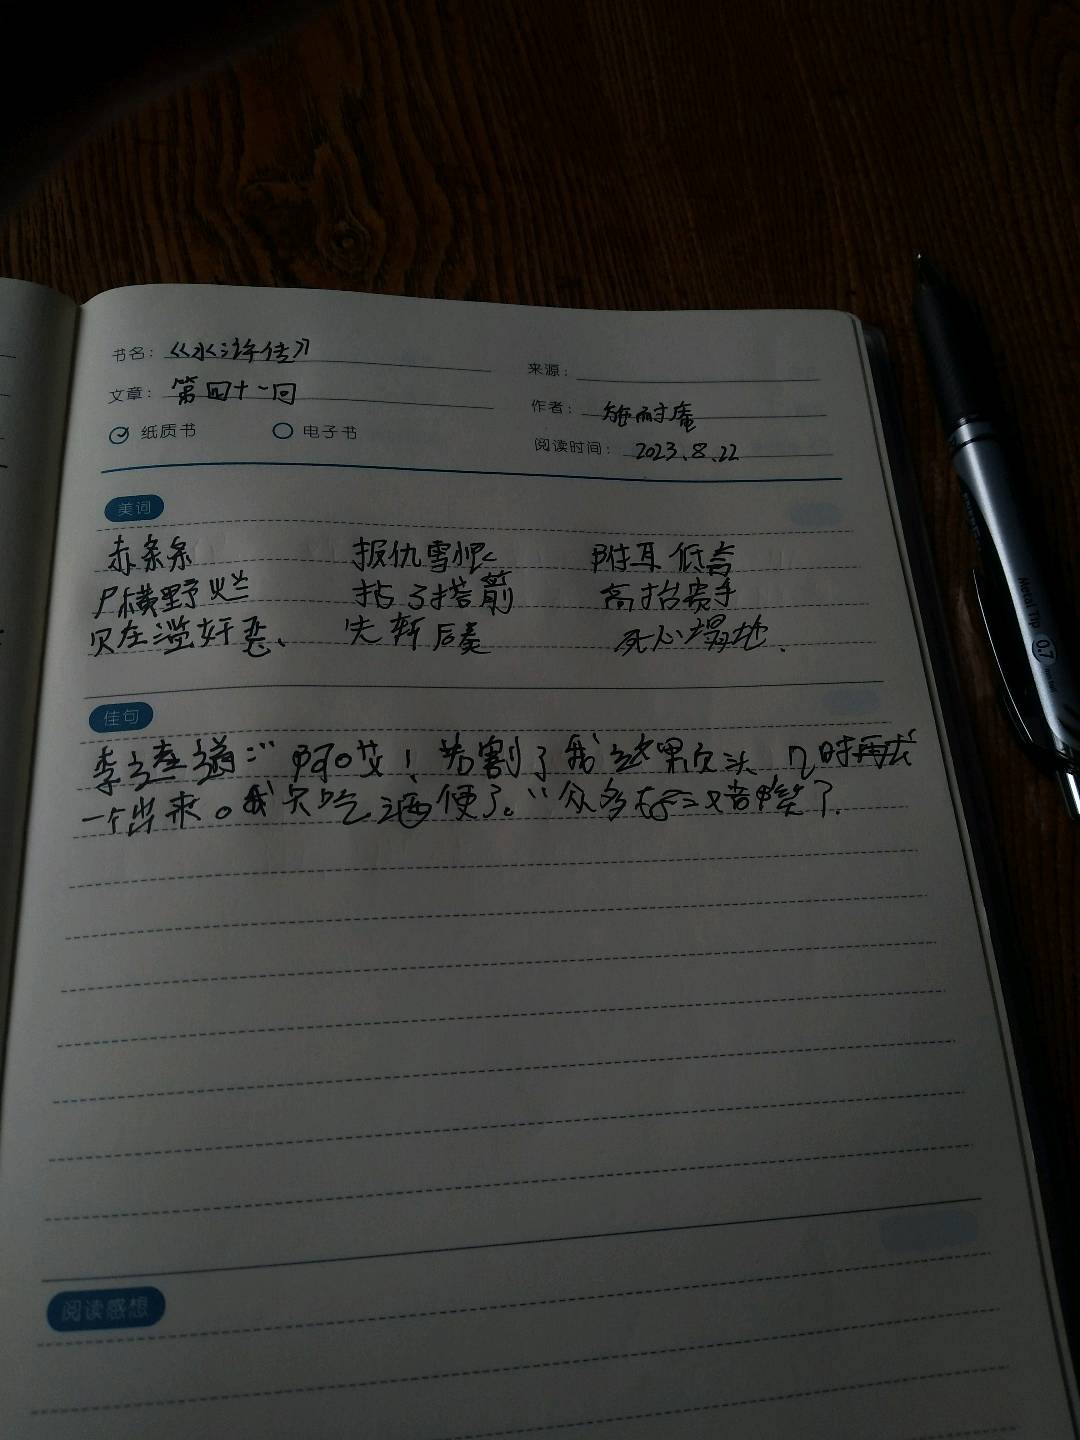 书名：《水浒传》
来源：
文章：第四十一回
作者：施耐庵
纸质书 电子书
阅读时间：2023.8.22
美词
赤条条 报仇雪恨 附耳低言
尸横野烂 拈弓搭箭 高抬贵手
贝左滥奸恶、 先斩后奏 死心塌地.
佳句
李逵道：“阿哎！若割了我这颗头，几时再长
一个出来。我只吃酒便了。”众多好汉都笑了.
阅读感想
Metal Tip 0.7